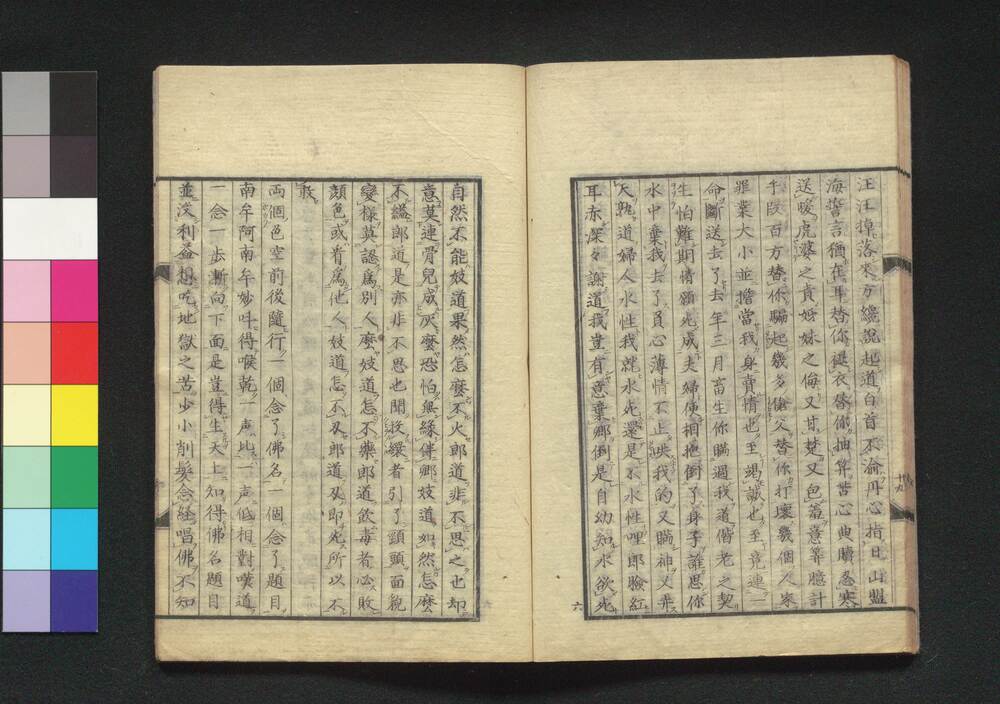 汪汪掉落來方纔說起道白首不渝丹心指日山盟
海誓言猶在耳替你褪衣替你抽簪苦心典曠忍寒
送暖虎婆之責姊妹之侮又甘楚又包羞意筭臆計
千段百方替你騙起幾多傖父替你打壞幾個人家
罪業大小並擔當我身賣情也至竭誠也至竟連一
命斷送去了去年三月畜生你瞞過我道偕老之契
生怕難期情願死成夫婦便相抱倒了身子誰思你
水中棄我去了負心薄情不止哄我的又瞞神又弄
天熟道婦人水性我就水死還是不水性哩郎臉紅
耳赤深々謝道我豈有意棄卿倒是自幼知水欲死
六
自然不能妓道果然怎麼不火郎道非不思之也却
意莫連骨兒成灰麼恐怕無緣傳卿妓道如然怎麼
不縊郎道是亦非不思也聞投繯者引了頸頭面貌
變樣莫認爲別人麼妓道怎不藥郎道飲毒者必敗
顔色或看爲他人妓道怎不刄郎道刄即死所以不
敢
両個色空前後隨行一個念了佛名一個念了題目
南牟阿南牟妙呌得喉乾一声比一声低相對嘆道
一念一歩漸向下面是豈得生天上知得佛名題目
並沒利益想吃地獄之苦少小削髮念経唱佛不知